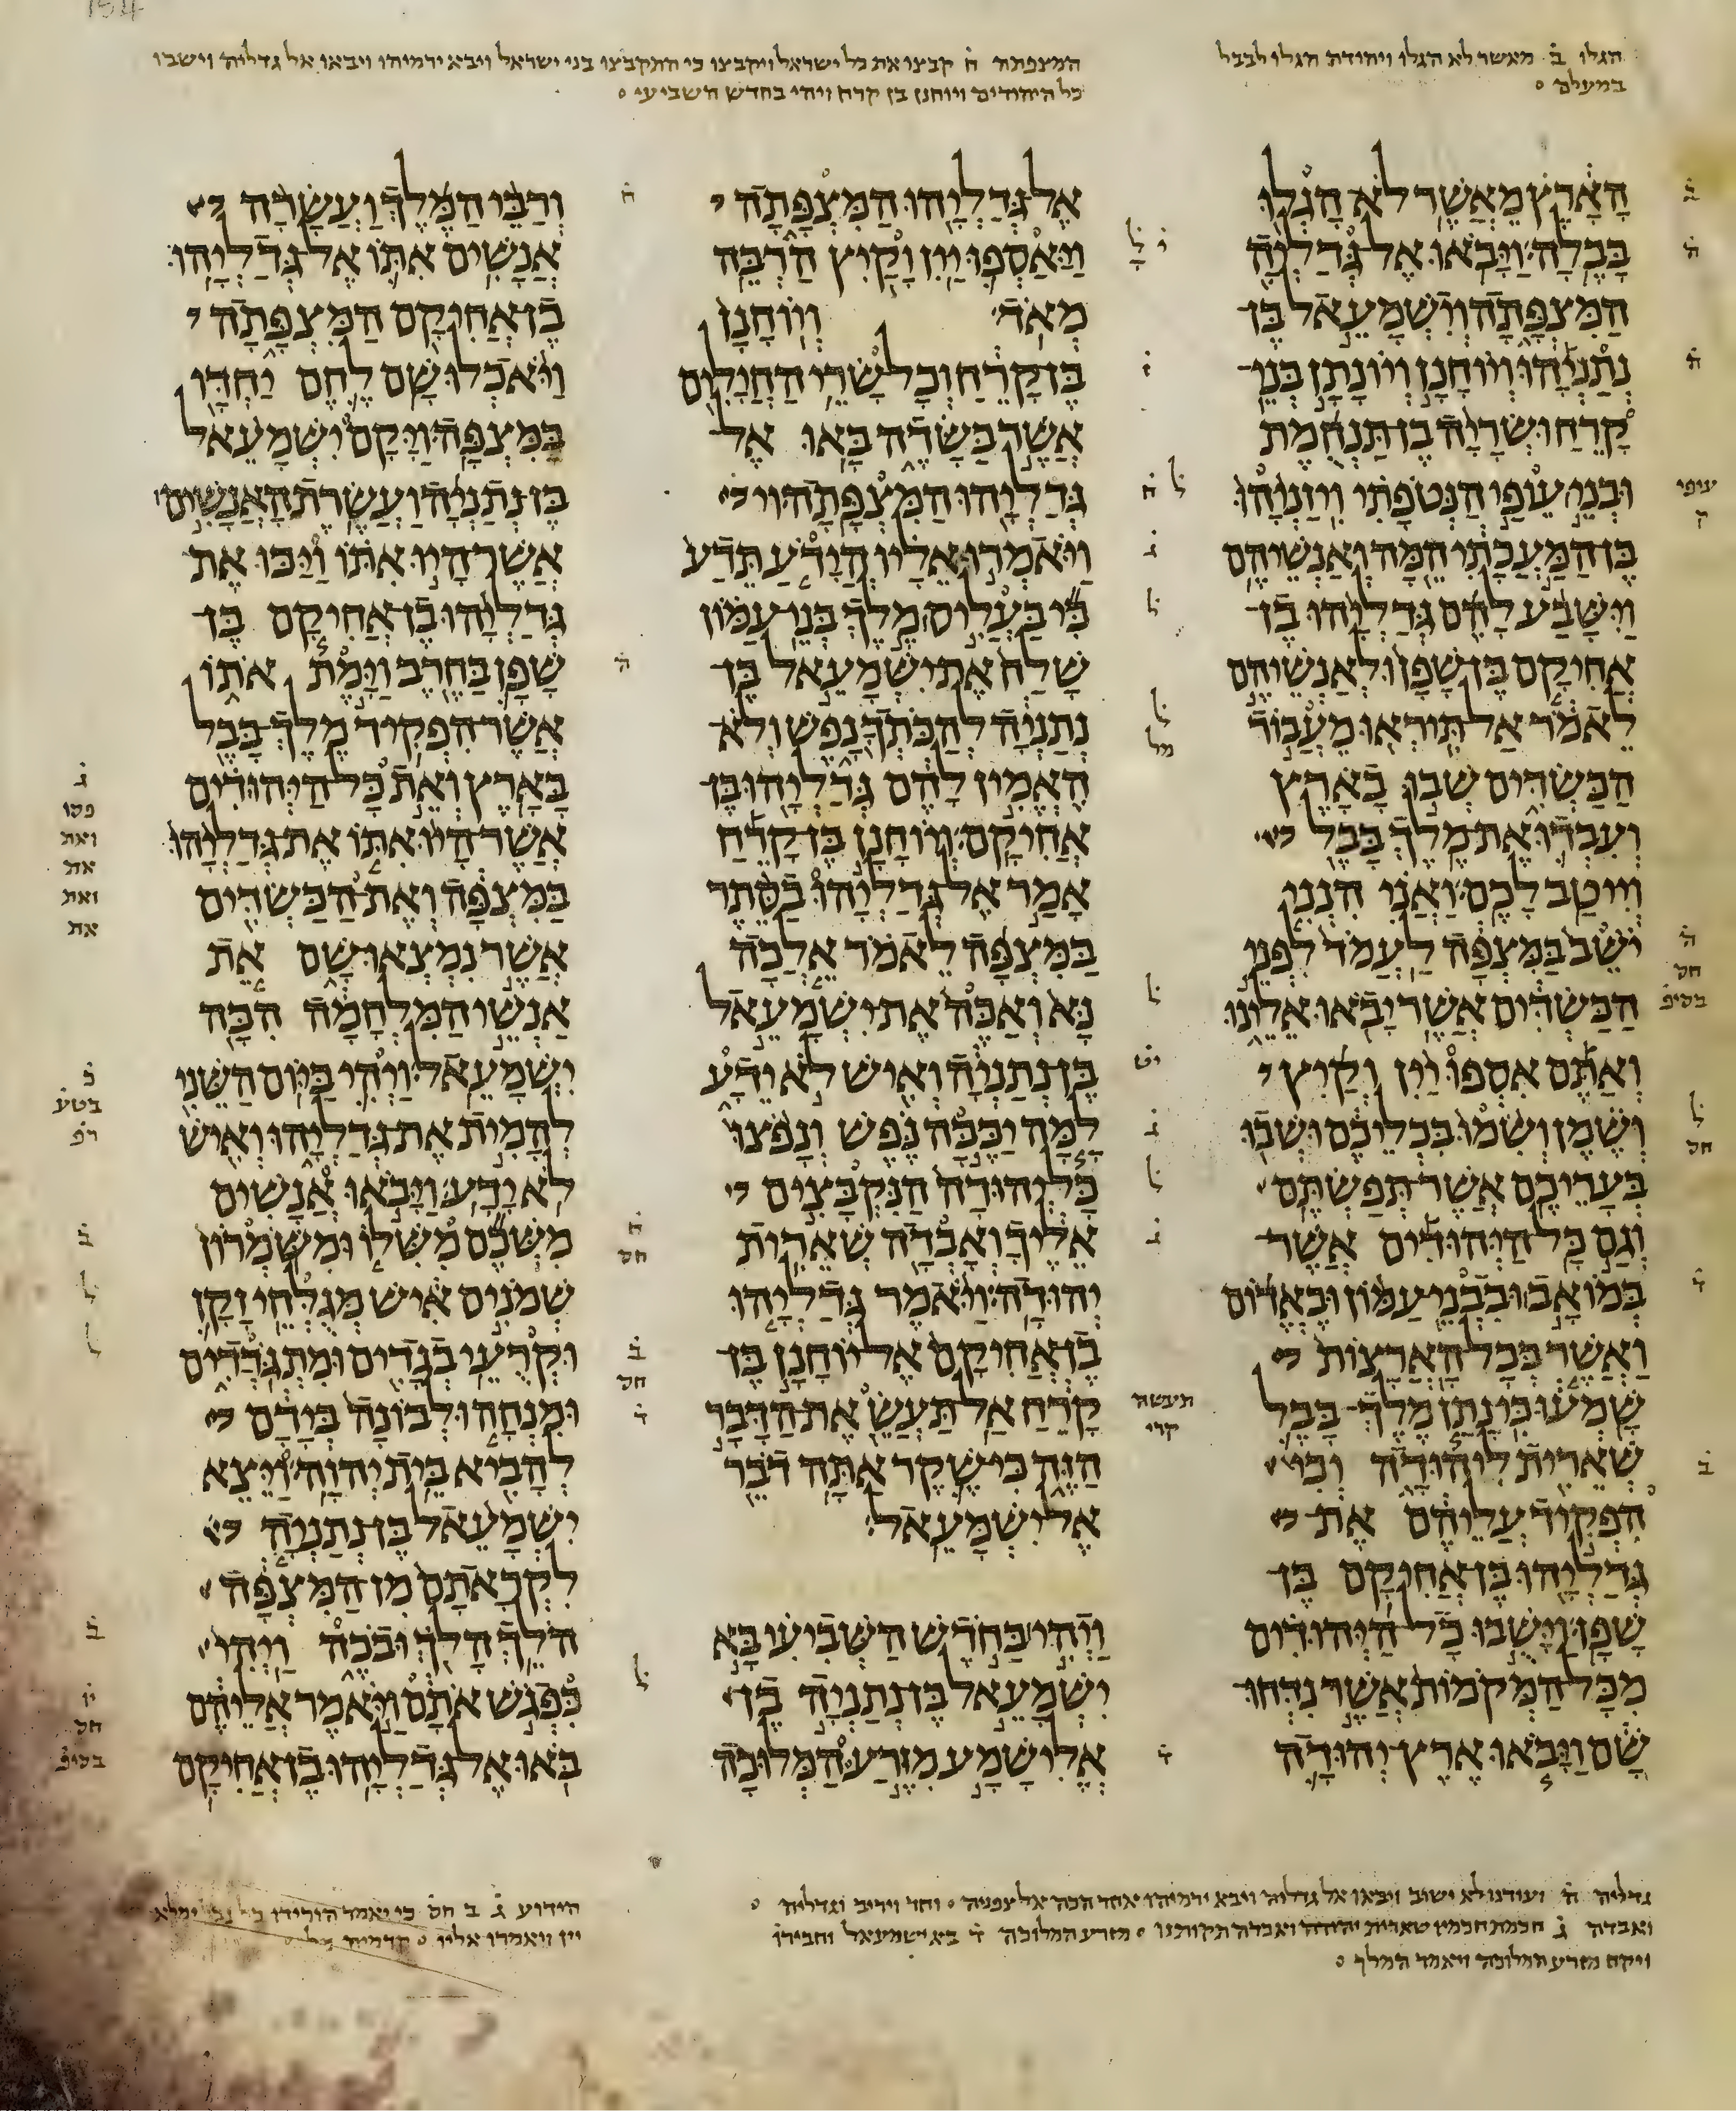 הגלו ב מאשר לא הגלו ויהודת הגלו לבבל
במעלם
המצפתה ח קבצו את כל ישראל ויקבצו כי התקבצו בני ישראל ויבא ירמיהו ויבאו אל גדליה וישבו
כל היהודים ויוחנן בן קרח ויהי בחדש השביעי
הארץ מאשר לא הגלו
בבלה ויבאו אל גדליה
המצפתה וישמעאל בן
נתניהו ויוחנן ויונתן בני
קרח ושריה בן תנחמת
ובני עופי הנטפתי ויזניהו
בן המעכתי המה ואנשיהם
וישבע להם גדליהו בן
אחיקם בן שפן ולאנשיהם
לאמר אל תיראו מעבוד
הכשדים שבו בארץ
ועבדו את מלך בבל
וייטב לכם ואני הנני
ישב במצפה לעמד לפני
הכשדים אשר יבאו אלינו
ואתם אספו יין וקיץ
ושמן ושמו בכליכם ושבו
בעריכם אשר תפשתם
וגם כל היהודים אשר
במואב ובבני עמון ובאדום
ואשר בכל הארצות
שמעו כי נתן מלך בבל
שארית ליהודה וכי
הפקיד עליהם את
גדליהו בן אחיקם בן
שפן וישבו כל היהודים
מכל המקמות אשר נדחו
שם ויבאו ארץ יהודה
אל גדליהו המצפתה
ויאספו יין וקיץ הרבה
מאד ויוחנן
בן קרח וכל שרי החילים
אשר בשדה באו אל
גדליהו המצפתה
ויאמרו אליו הידע תדע
כי בעלים מלך בני עמון
שלח את ישמעאל בן
נתניה להכתך נפש ולא
האמין להם גדליהו בן
אחיקם ויוחנן בן קרח
אמר אל גדליהו בסתר
במצפה לאמר אלכה
נא ואכה את ישמעאל
בן נתניה ואיש לא ידע
למה יככה נפש ונפצו
כל יהודה הנקבצים
אליך ואבדה שארית
יהודה ויאמר גדליהו
בן אחיקם אל יוחנן בן
קרח אל תעש את הדבר
הזה כי שקר אתה דבר
אל ישמעאל
ויהי בחדש השביעי בא
ישמעאל בן נתניה בן
אלישמע מזרע המלוכה
ורבי המלך ועשרה
אנשים אתו אל גדליהו
בן אחיקם המצפתה
ויאכלו שם לחם יחדו
במצפה ויקם ישמעאל
בן נתניה ועשרת האנשים
אשר היו אתו ויכו את
גדליהו בן אחיקם בן
שפן בחרב וימת אתו
אשר הפקיד מלך בבל
בארץ ואת כל היהודים
אשר היו אתו את גדליהו
במצפה ואת הכשדים
אשר נמצאו שם את
אנשי המלחמה הכה
ישמעאל ויהי ביום השני
להמית את גדליהו ואיש
לא ידע ויבאו אנשים
משכם משלו ומשמרון
שמנים איש מגלחי זקן
וקרעי בגדים ומתגדדים
ומנחה ולבונה בידם
להביא בית יהוה ויצא
ישמעאל בן נתניה
לקראתם מן המצפה
הלך הלך ובכה ויהי
כפגש אתם ויאמר אליהם
באו אל גדליהו בן אחיקם
עיפי
ק
תעשה
קרי
גדליה ה ועודנו לא ישוב ויבאו אל גדליה ויבא ירמיהו
ואבדה ג חכמת חכמיו שארית יהודה ואבדה תקותנו מזרע המלוכה ד בא ישמעאל וחבירו
ויקח מזרע המלוכה ויאמר המלך
הידוע ג ב חס